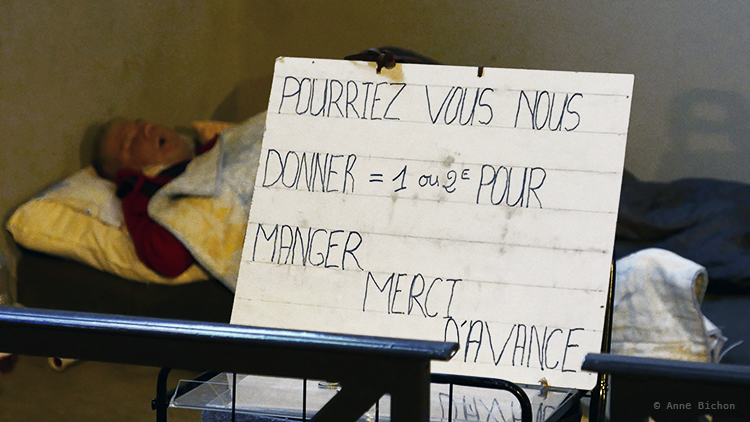 POURRIEZ VOUS NOUS
DONNER = 1 ou 2E POUR
MANGER
MERCI
D'AVANCE
© Anne Bichon